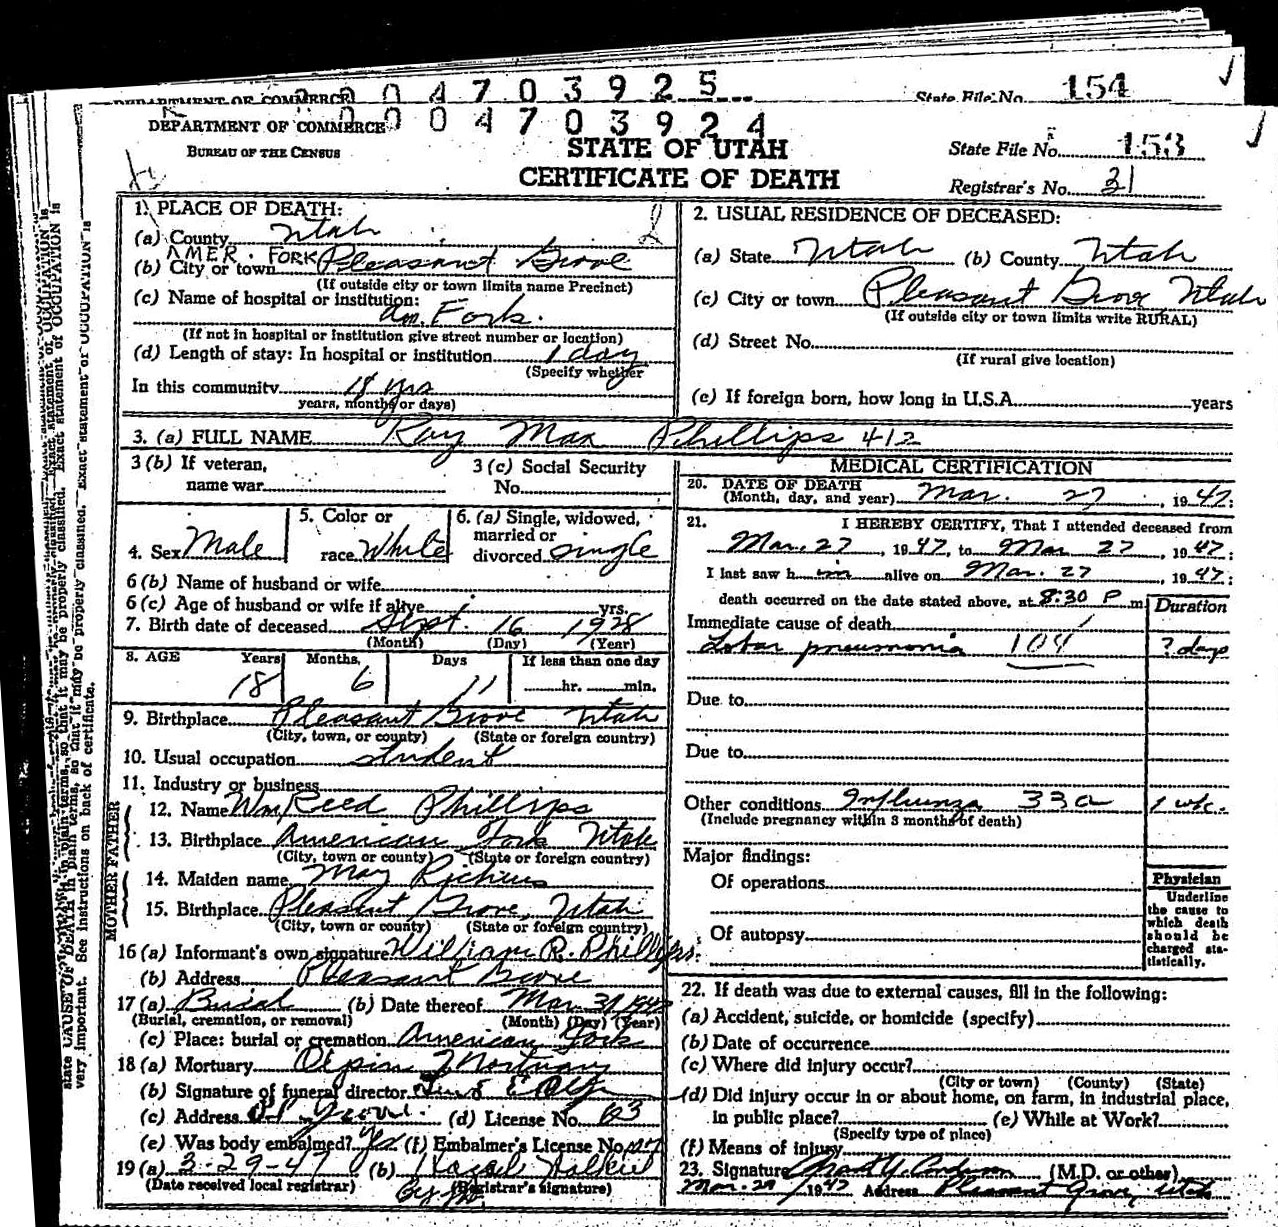 0 0 4 7 0 3 9 2 5
DEPARTMENT OF COMMERCE
State File No. 154
0 0 4 7 0 3 9 2 4
DEPARTMENT OF COMMERCE
BUREAU OF THE CENSUS
STATE OF UTAH
CERTIFICATE OF DEATH
State File No. 153
Registrar's No. 31
1. PLACE OF DEATH:
(a) County Utah
AMER. FORK
(b) City or town Pleasant Grove
(If outside city or town limits name Precinct)
(c) Name of hospital or institution:
Am. Fork.
(If not in hospital or institution give street number or location)
(d) Length of stay: In hospital or institution 1 day
(Specify whether
In this community 18 yrs
years, months or days)
2. USUAL RESIDENCE OF DECEASED:
(a) State Utah (b) County Utah
(c) City or town Pleasant Grove Utah
(If outside city or town limits write RURAL)
(d) Street No.
(If rural give location)
(e) If foreign born, how long in U.S.A. years
3. (a) FULL NAME Ray Max Phillips 412
3 (b) If veteran, name war
3 (c) Social Security No.
4. Sex Male
5. Color or race White
6. (a) Single, widowed, married or divorced single
6 (b) Name of husband or wife
6 (c) Age of husband or wife if alive yrs.
7. Birth date of deceased Sept. 16 1928
(Month) (Day) (Year)
8. AGE Years Months Days If less than one day
18 6 11 hr. min.
9. Birthplace Pleasant Grove Utah
(City, town, or county) (State or foreign country)
10. Usual occupation student
11. Industry or business
FATHER
12. Name Wm Reed Phillips
13. Birthplace American Fork Utah
(City, town or county) (State or foreign country)
MOTHER
14. Maiden name May Richins
15. Birthplace Pleasant Grove, Utah
(City, town or county) (State or foreign country)
16 (a) Informant's own signature William R. Phillips
(b) Address Pleasant Grove
17 (a) Burial (b) Date thereof Mar. 31 1947
(Burial, cremation, or removal) (Month) (Day) (Year)
(c) Place: burial or cremation American Fork
18 (a) Mortuary Olpin Mortuary
(b) Signature of funeral director
(c) Address Pl Grove. (d) License No. 63
(e) Was body embalmed? Yes (f) Embalmer's License No.
19 (a) 3-29-47 (b)
(Date received local registrar) (Registrar's signature)
MEDICAL CERTIFICATION
20. DATE OF DEATH
(Month, day, and year) Mar. 27, 1947:
21. I HEREBY CERTIFY, That I attended deceased from
Mar. 27, 1947, to Mar 27, 1947:
I last saw him alive on Mar. 27, 1947:
death occurred on the date stated above, at 8:30 P m.
Duration
Immediate cause of death
Lobar pneumonia 104 ? days
Due to
Due to
Other conditions Influenza 33a 1 wk.
(Include pregnancy within 3 months of death)
Major findings:
Of operations
Of autopsy
Physician
Underline
the cause to
which death
should be
charged sta-
tistically.
22. If death was due to external causes, fill in the following:
(a) Accident, suicide, or homicide (specify)
(b) Date of occurrence
(c) Where did injury occur?
(City or town) (County) (State)
(d) Did injury occur in or about home, on farm, in industrial place,
in public place? (e) While at Work?
(Specify type of place)
(f) Means of injury
23. Signature (M.D. or other)
Mar. 29 1947 Address Pleasant Grove, Utah
state CAUSE OF DEATH in plain terms, so that it may be properly classified. Exact statement of OCCUPATION is
very important. See instructions on back of certificate.